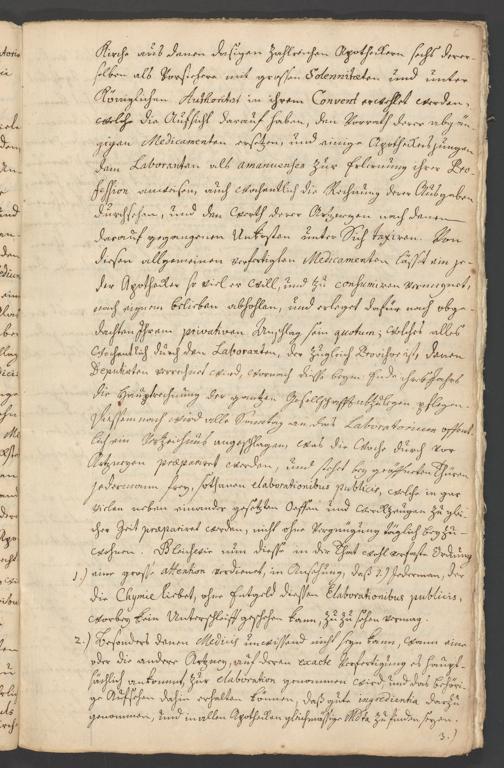 6
Kirche aus denen dasigen zahlreichen Apothekern sechs derer-
selben als Vorstehere mit grossen Solennitaten und unter
Königlichen Authoritat in ihrem Convent erwehlet werden,
welche die Aufsicht darauf haben, den Vorrath derer abgän-
gigen Medicamenten ersetzen, und einige Apotheker Jungen
dem Laboranten als amanuenses zur Erlernung ihrer Pro-
fession anweisen, auch wochentlich die Rechnung derer Ausgaben
durchsehen, und den werth derer Artzneyen nach denen
darauf gegangenen Unkosten unter Sich taxiren. Von
diesen allgemeinen verfertigten Medicamenten läst ein je-
der Apotheker so viel er will, und zu consumiren vermeynet,
nach eignem belieben abhohlen, und erleget dafür nach obge-
dachten Ihrem privativen Anschlag sein quotum, welches alles
wochentlich durch den Laboranten, der zugleich Provisor ist, denen
Deputaten verrechnet wird, wornach diese beym Ende ihres Jahres
die Hauptrechnung der gantzen Gesellschafft abzulegen pflegen.
Diesem nach wird alle Sonntag an das Laboratorium öffent-
lich ein Verzeichnis angeschlagen, was die Woche durch vor
Artzneyen præpariret werden, und stehet bey geöffneten Thüren
jedermann frey, sothanen elaborationibus publicis, welche in gar
vielen neben einander gesetzten Oeffen und werckzeugen zu glei-
cher Zeit præpariret werden, nicht ohne Vergnügung täglich beyzu-
wohnen. Gleichwie nun diese in der That wohl verfaste Ordnung
1.) eine grosse attention verdienet, in Ansehung, daß Jederman, der
die Chymie liebet, ohne Entgeld diessen Elaborationibus publicis,
worbey kein Unterschleiff geschehen kann, zuzusehen vermag.
2.) Besonders denen Medicis unwissend nicht seyn kann, wann eine
oder die andere Artzney, auf deren exacte Verfertigung es haupt-
sächlich ankommt, zur elaboration genommen wird, und das behöri-
ge Aufsehen dahin erhalten können, daß gute ingredientia darzu
genommen, und in allen Apotheken gleichmässige zu finden seyen.
3.)